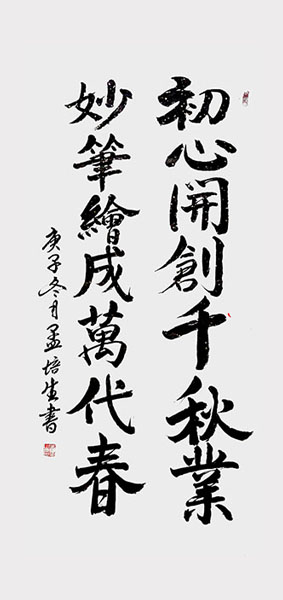 初心開創千秋業
妙筆繪成萬代春
庚子冬月孟培生書